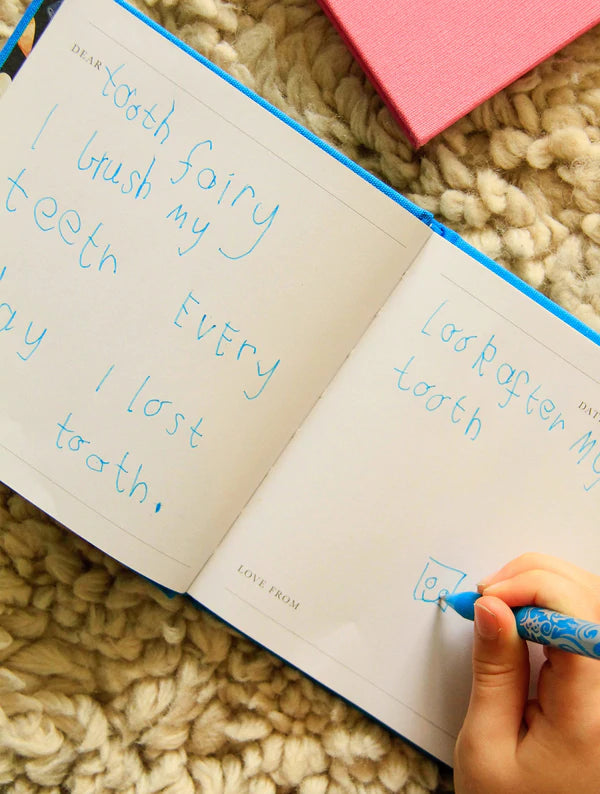 DEAR tooth fairy
I brush my
teeth EvEry
ay I lost
tooth.
DAT
Look after my
tooth
LOVE FROM